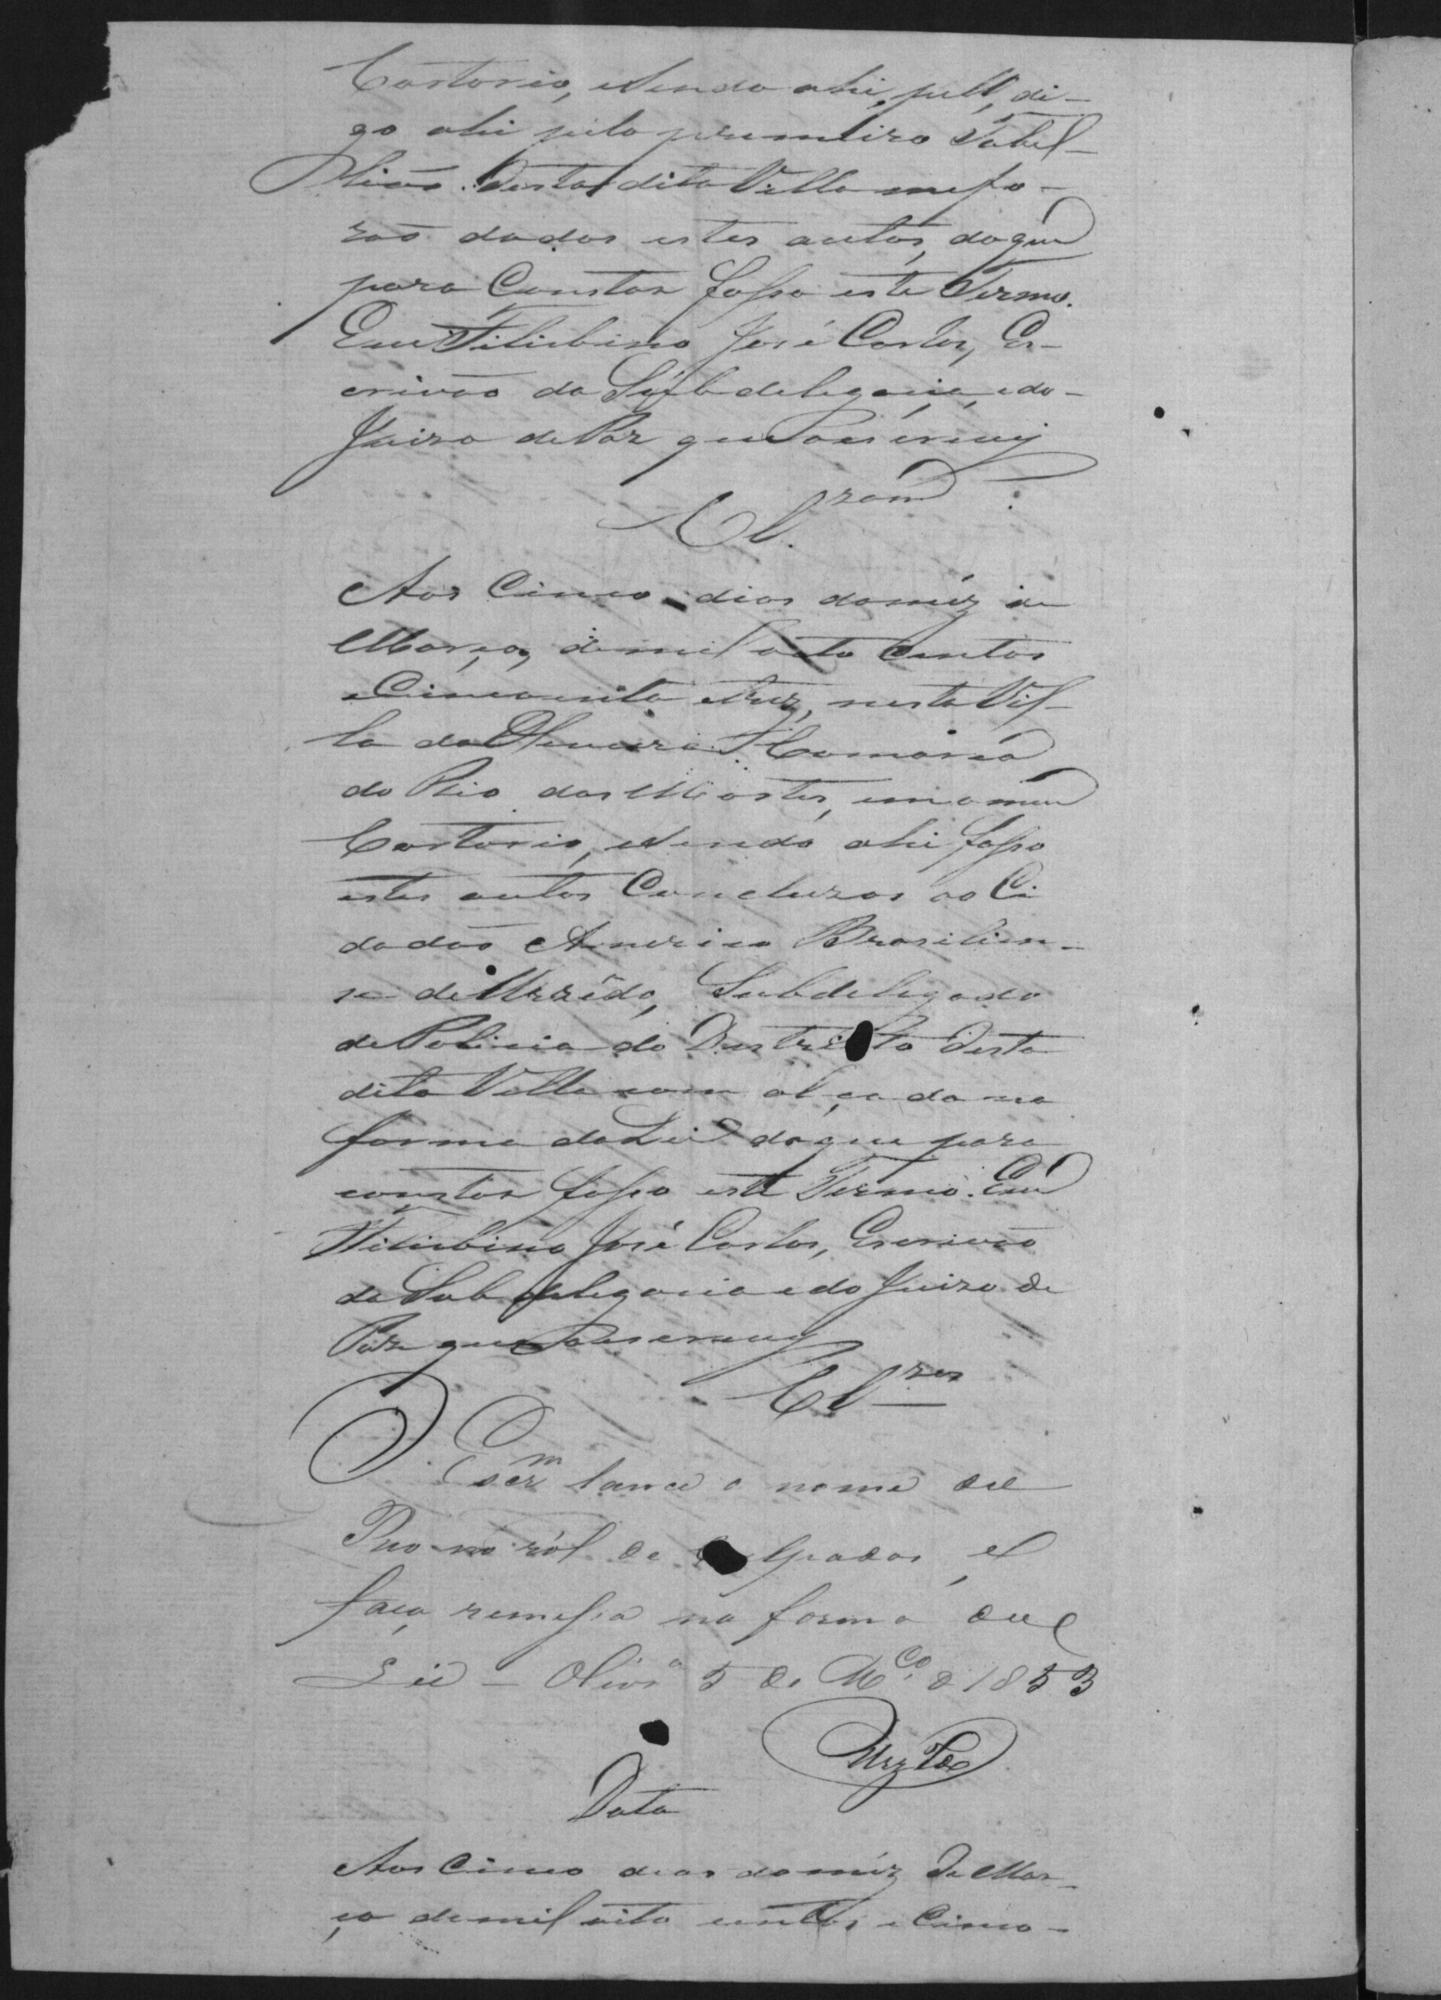 Cartorio, esendo ahi, pell, di-
go ahi pelo premeiro Tabel-
liaõ desta dita Villa mefo-
raõ dados estes autos, doque
para Constar fasso este Termo.
Eu Felisbino José Carlos, Es-
crivaõ da Subdelegacia, edo-
Juizo dePaz que o escrevy
Cl.zam
Aos Cinco dias domêz de
Março, demil oito Centos
eCincoenta etrez, nesta Vil-
la da Oliveira Comarca
do Rio das Mortes, em o meu
Cartorio, esendo ahi fasso
estes autos Concluzos ao Ci
dadaõ Americo Brasilien-
se de Urzêdo, Subdelegado
dePolicia do Destricto desta
dita Villa com alçada na
forma daLei doque para
constar fasso este Termo. Eu
Felisbino José Carlos, Escrivaõ
da Subdelegacia edo Juizo de
Paz que o escrevy
Cl.zos
O Escrm lance o nome do
Reo no ról de culpados, e
faça remessa na forma da
Lei - Olivra 5 de Mço. d 1853
Urzedo
Data
Aos Cinco dias domêz de Mar-
ço demil oito centos e Cinco-